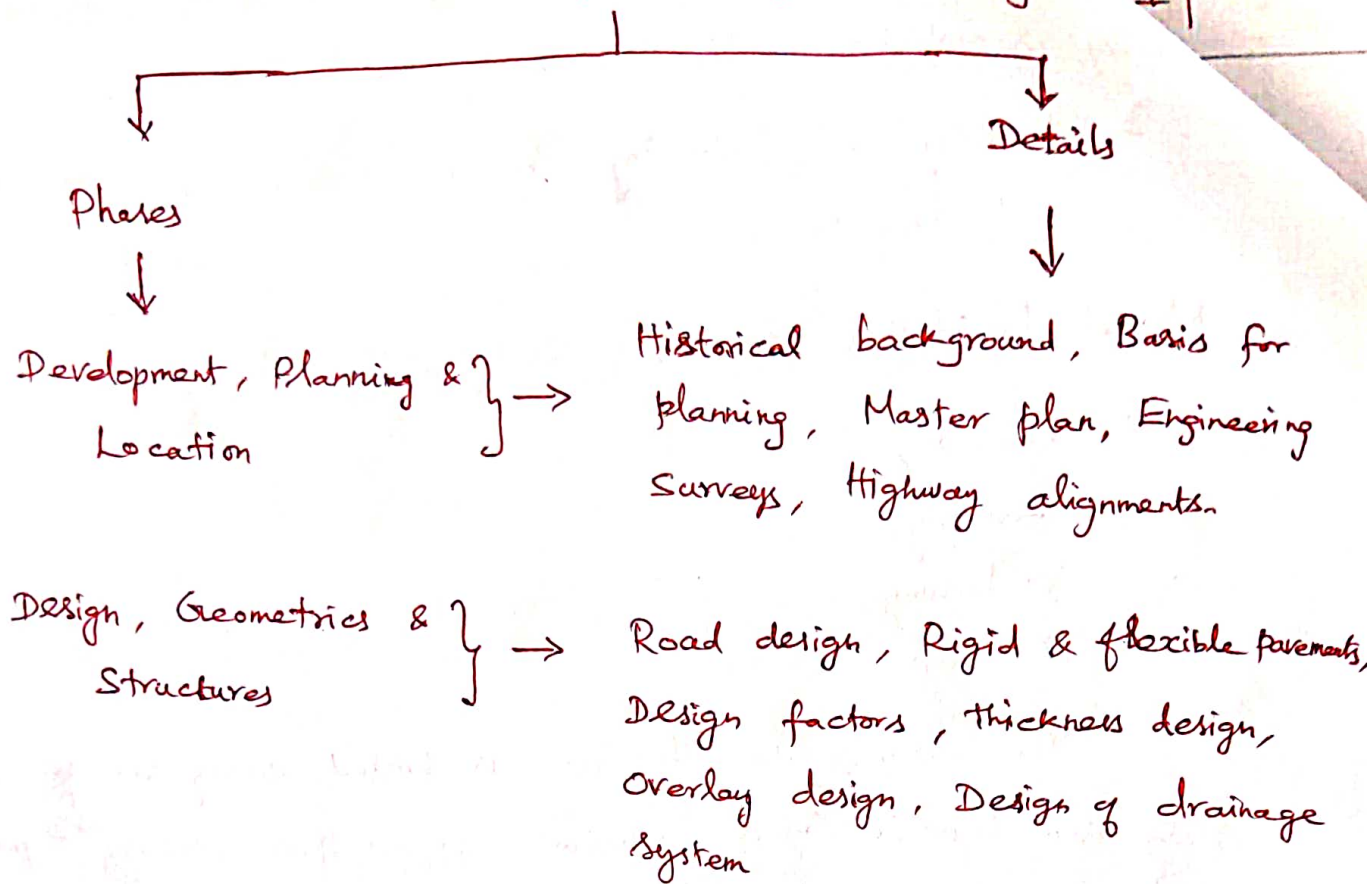 Details
Phases
Development, Planning &
Location
Historical background, Basis for
planning, Master plan, Engineering
Surveys, Highway alignments.
Design, Geometrics &
Structures
Road design, Rigid & flexible pavements,
Design factors, thickness design,
Overlay design, Design of drainage
system